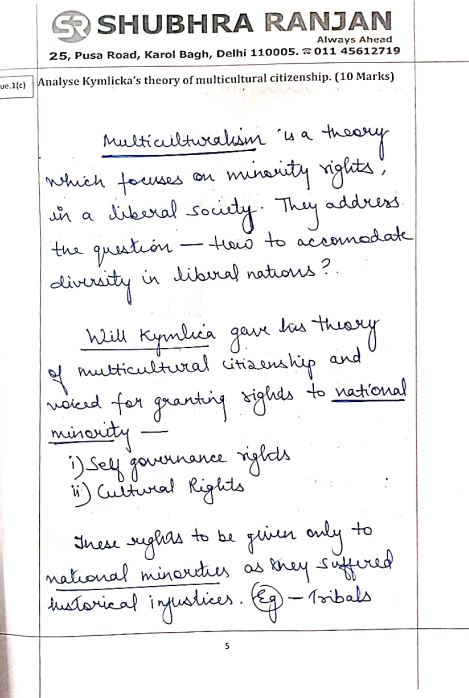 SR SHUBHRA RANJAN
Always Ahead
25, Pusa Road, Karol Bagh, Delhi 110005. ☎011 45612719
ue.1(c) Analyse Kymlicka's theory of multicultural citizenship. (10 Marks)
Multiculturalism is a theory
which focuses on minority rights,
in a liberal society. They address
the question — How to accomodate
diversity in liberal nations?
Will Kymlica gave his theory
of multicultural citizenship and
voiced for granting rights to national
minority —
i) Self governance rights
ii) Cultural Rights
These rights to be given only to
national minorities as they suffered
historical injustices. Eg — Tribals
5